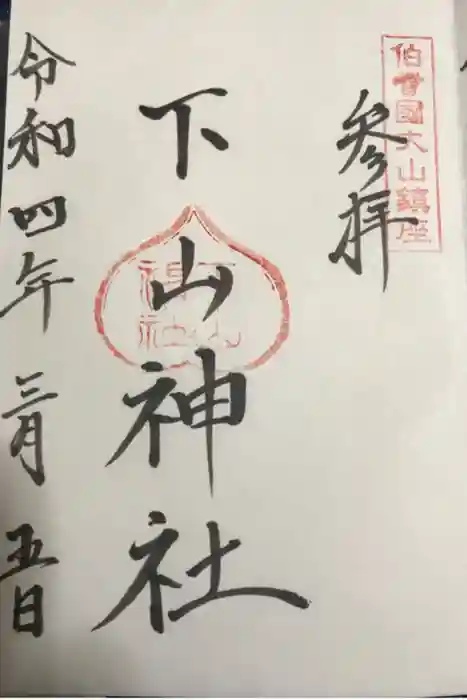 伯耆國大山鎮座
参拝
下山神社
下山
神社
令和四年三月五日